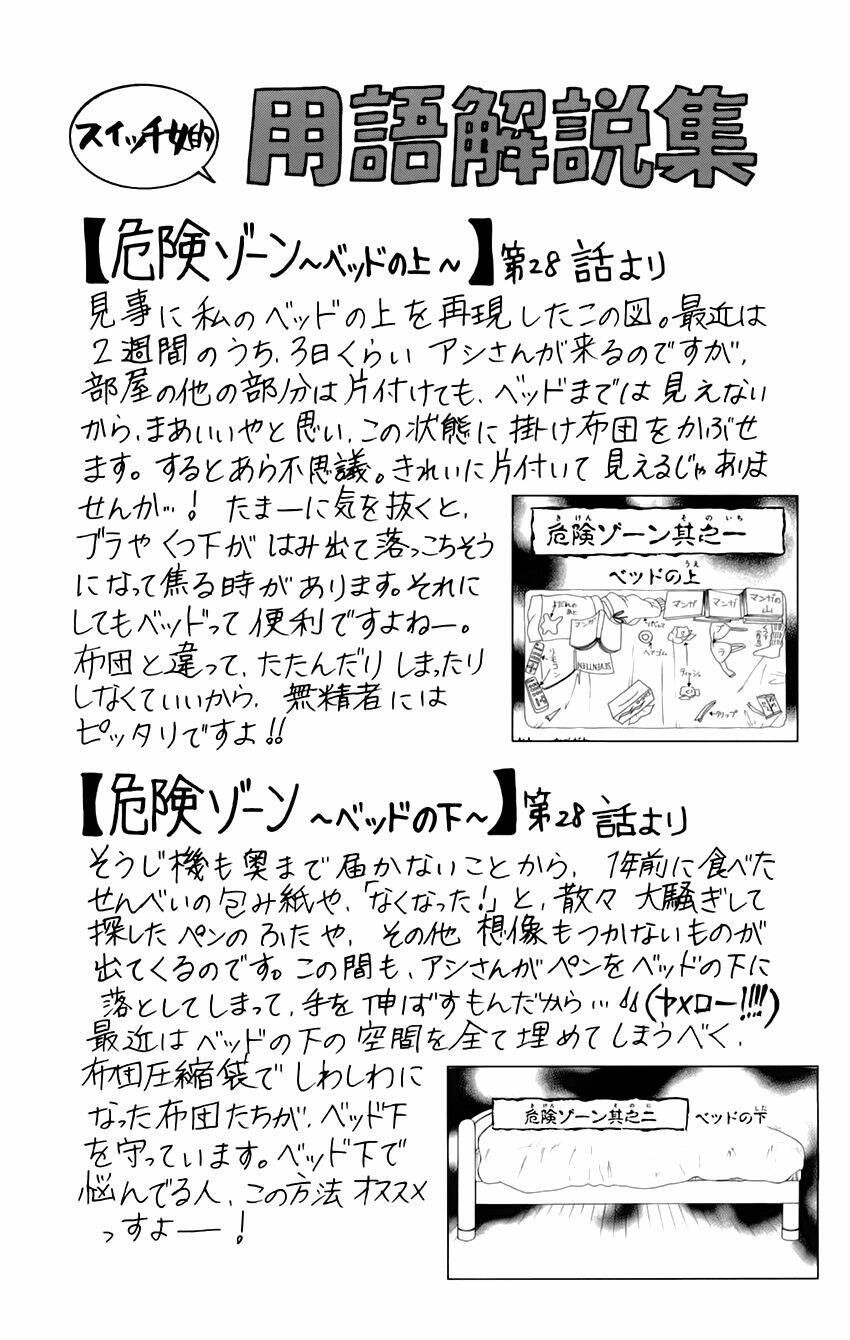 スイッチ女的
用語解説集
【危険ゾーン～ベッドの上～】第28話より
見事に私のベッドの上を再現したこの図。最近は
2週間のうち、3日くらいアシさんが来るのですが、
部屋の他の部分は片付けても、ベッドまでは見えない
から、まあいいやと思い、この状態に掛け布団をかぶせ
ます。するとあら不思議。きれいに片付いて見えるじゃありま
せんか…！たまーに気を抜くと、
ブラやくつ下がはみ出て落っこちそう
になって焦る時があります。それに
してもベッドって便利ですよねー。
布団と違って、たたんだりしまったり
しなくていいから、無精者には
ピッタリですよ!!
危険ゾーン其之一
きけん
そのいち
ベッドの上
うえ
よだれのあと
マンガ
マンガ
マンガ
マンガの山
リモコン
SEVENTEEN
ヘアゴム
ティッシュ
クリップ
【危険ゾーン～ベッドの下～】第28話より
そうじ機も奥まで届かないことから、1年前に食べた
せんべいの包み紙や、「なくなった！」と、散々大騒ぎして
探したペンのふたや、その他想像もつかないものが
出てくるのです。この間も、アシさんがペンをベッドの下に
落としてしまって、手を伸ばすもんだから…（ヤメロー!!!!）
最近はベッドの下の空間を全て埋めてしまうべく、
布団圧縮袋でしわしわに
なった布団たちが、ベッド下
を守っています。ベッド下で
悩んでる人、この方法オススメ
っすよー！
危険ゾーン其之二
きけん
そのに
ベッドの下
した